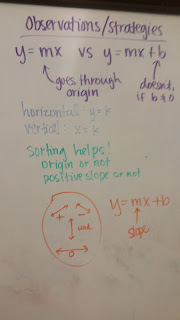 Observations/Strategies
y=mx vs y=mx+b
goes through
origin
doesn't,
if b≠0
horizontal: y=k
vertical: x=k
Sorting helps!
origin or not
positive slope or not
+ -
und.
0
y=mx+b
slope